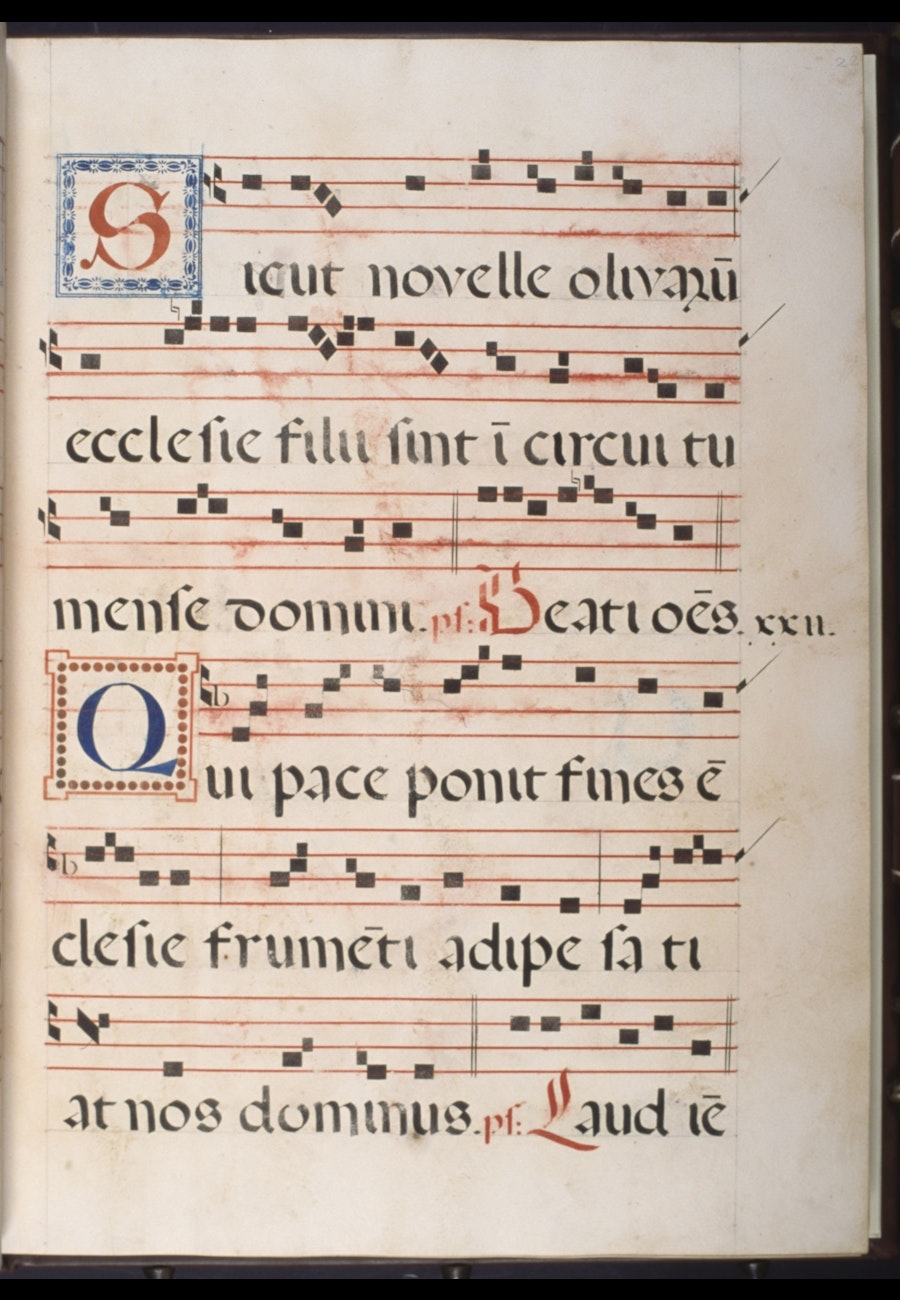 Sicut novelle olivarū
ecclesie filii sint ī circui tu
mense domini. ps: Beati oēs. xxii.
Qui pace ponit fines ē
clesie frumēti adipe sa ti
at nos dominus. ps: Laud iē